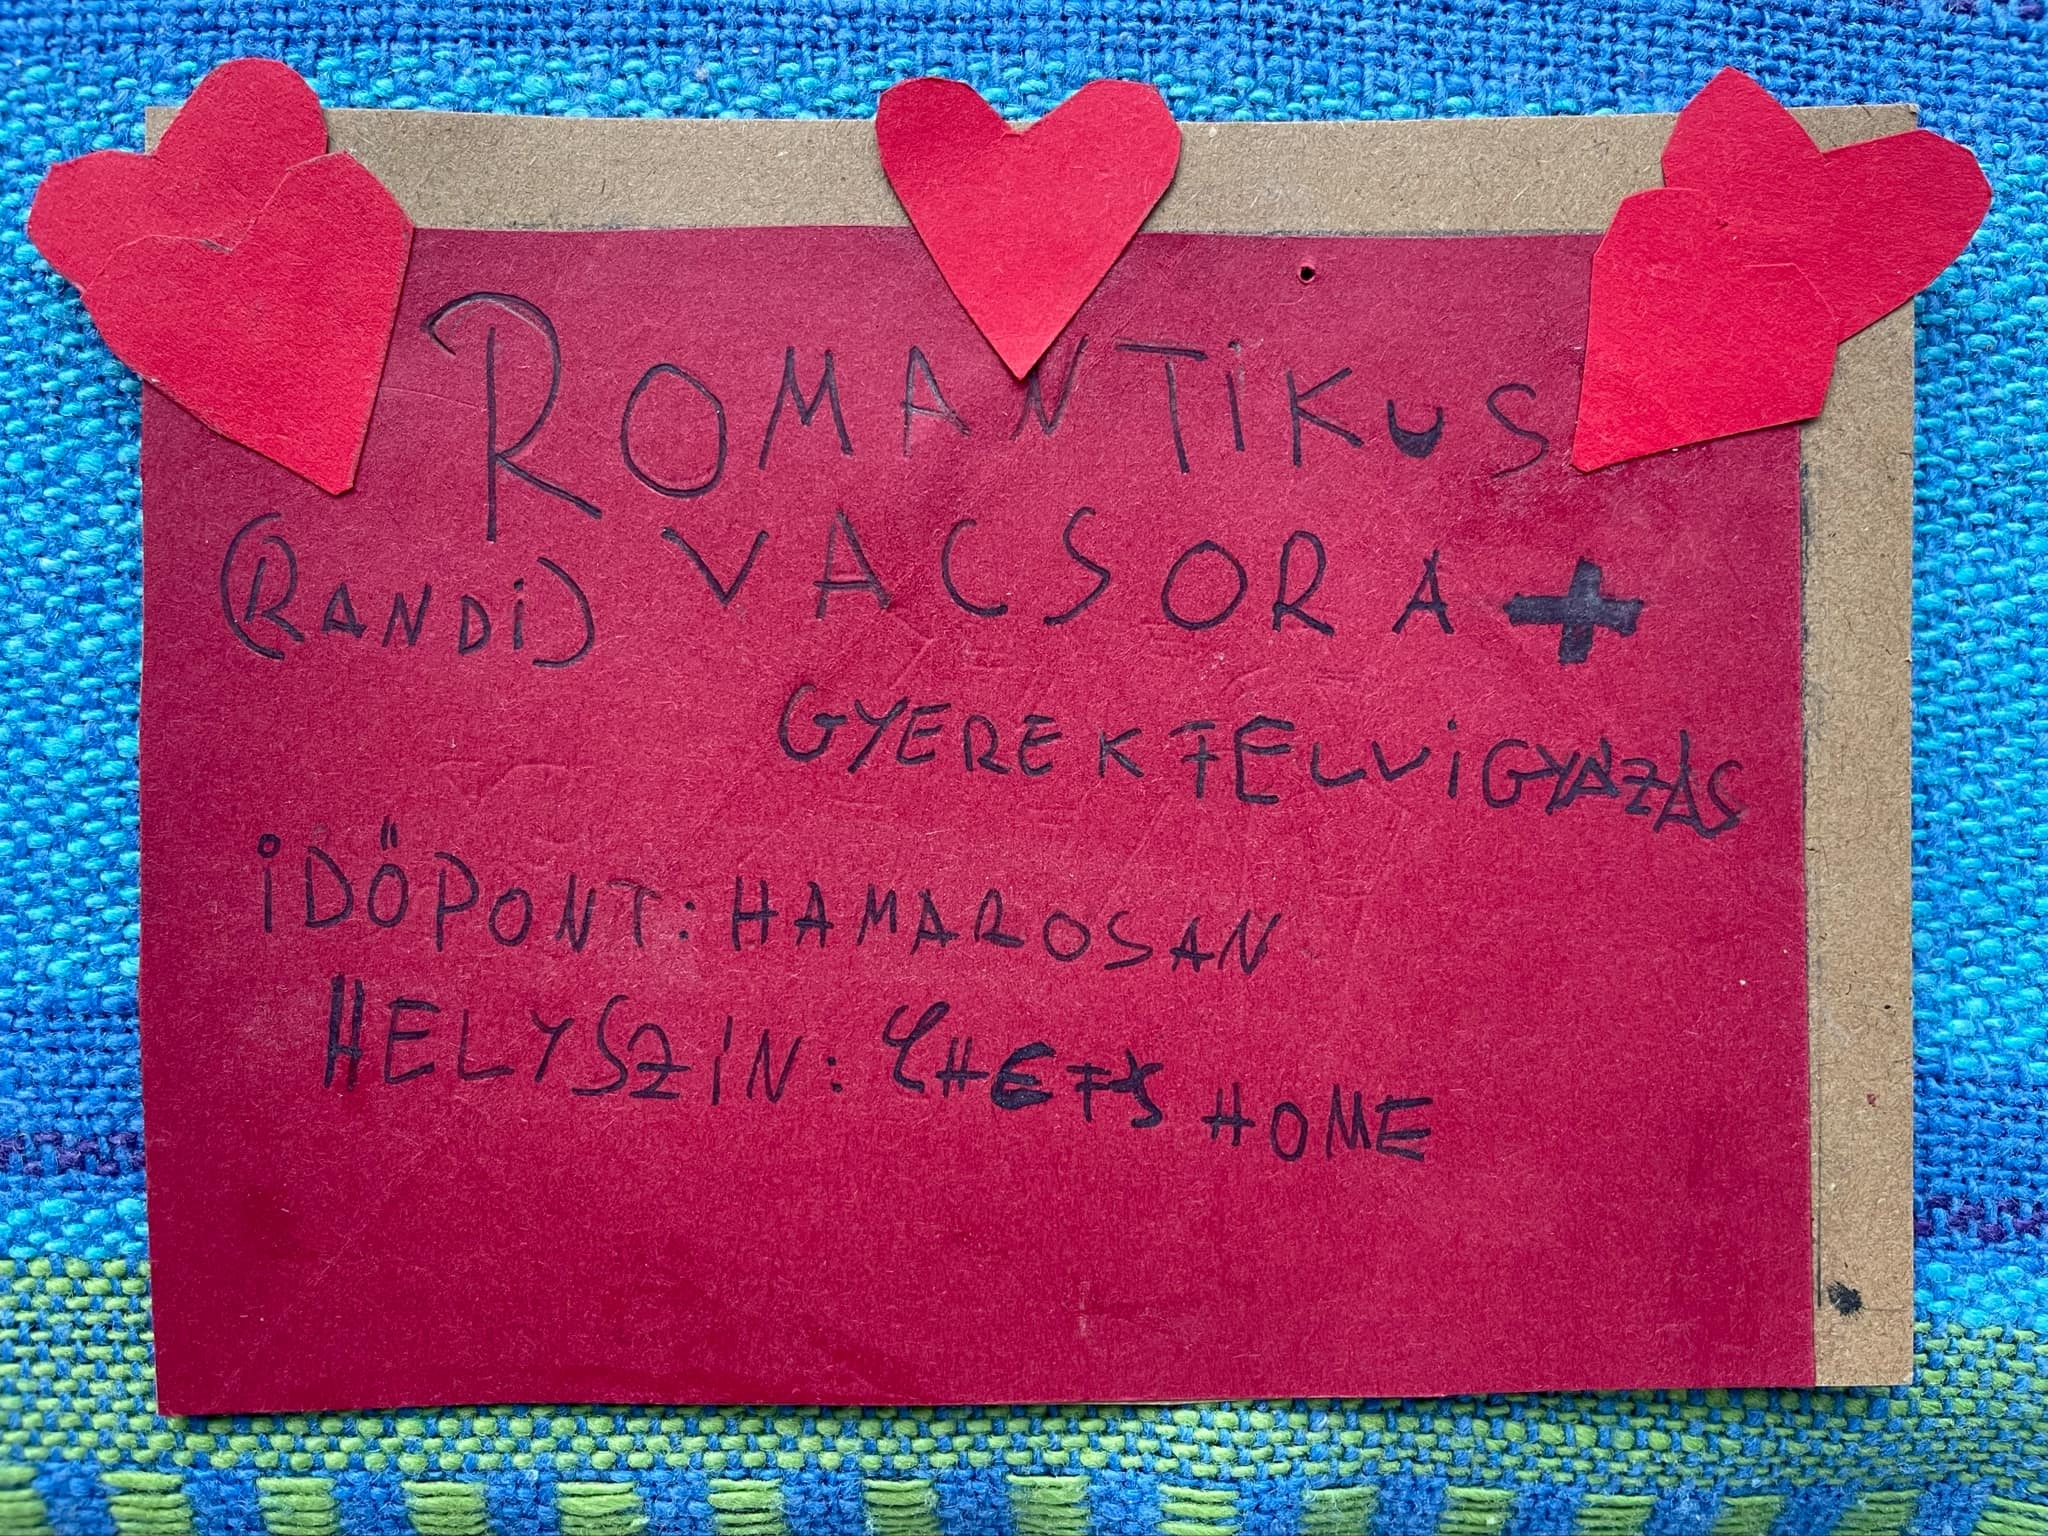 ROMANTiKUS
(RANDi) VACSORA +
GYEREKFELViGYÁZÁS
iDŐPONT: HAMAROSAN
HELYSZÍN: CHEFS HOME